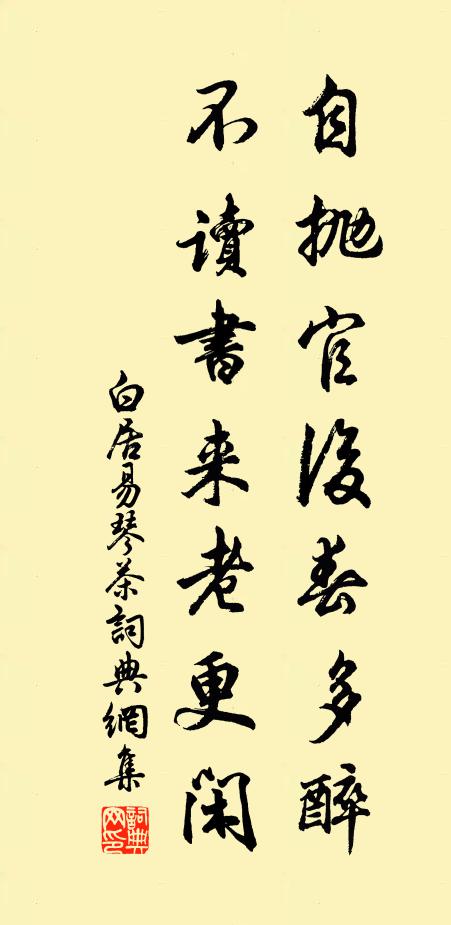 自抛官後春多醉
不讀書来老更閑
白居易琴茶詞典網集
詞典網印